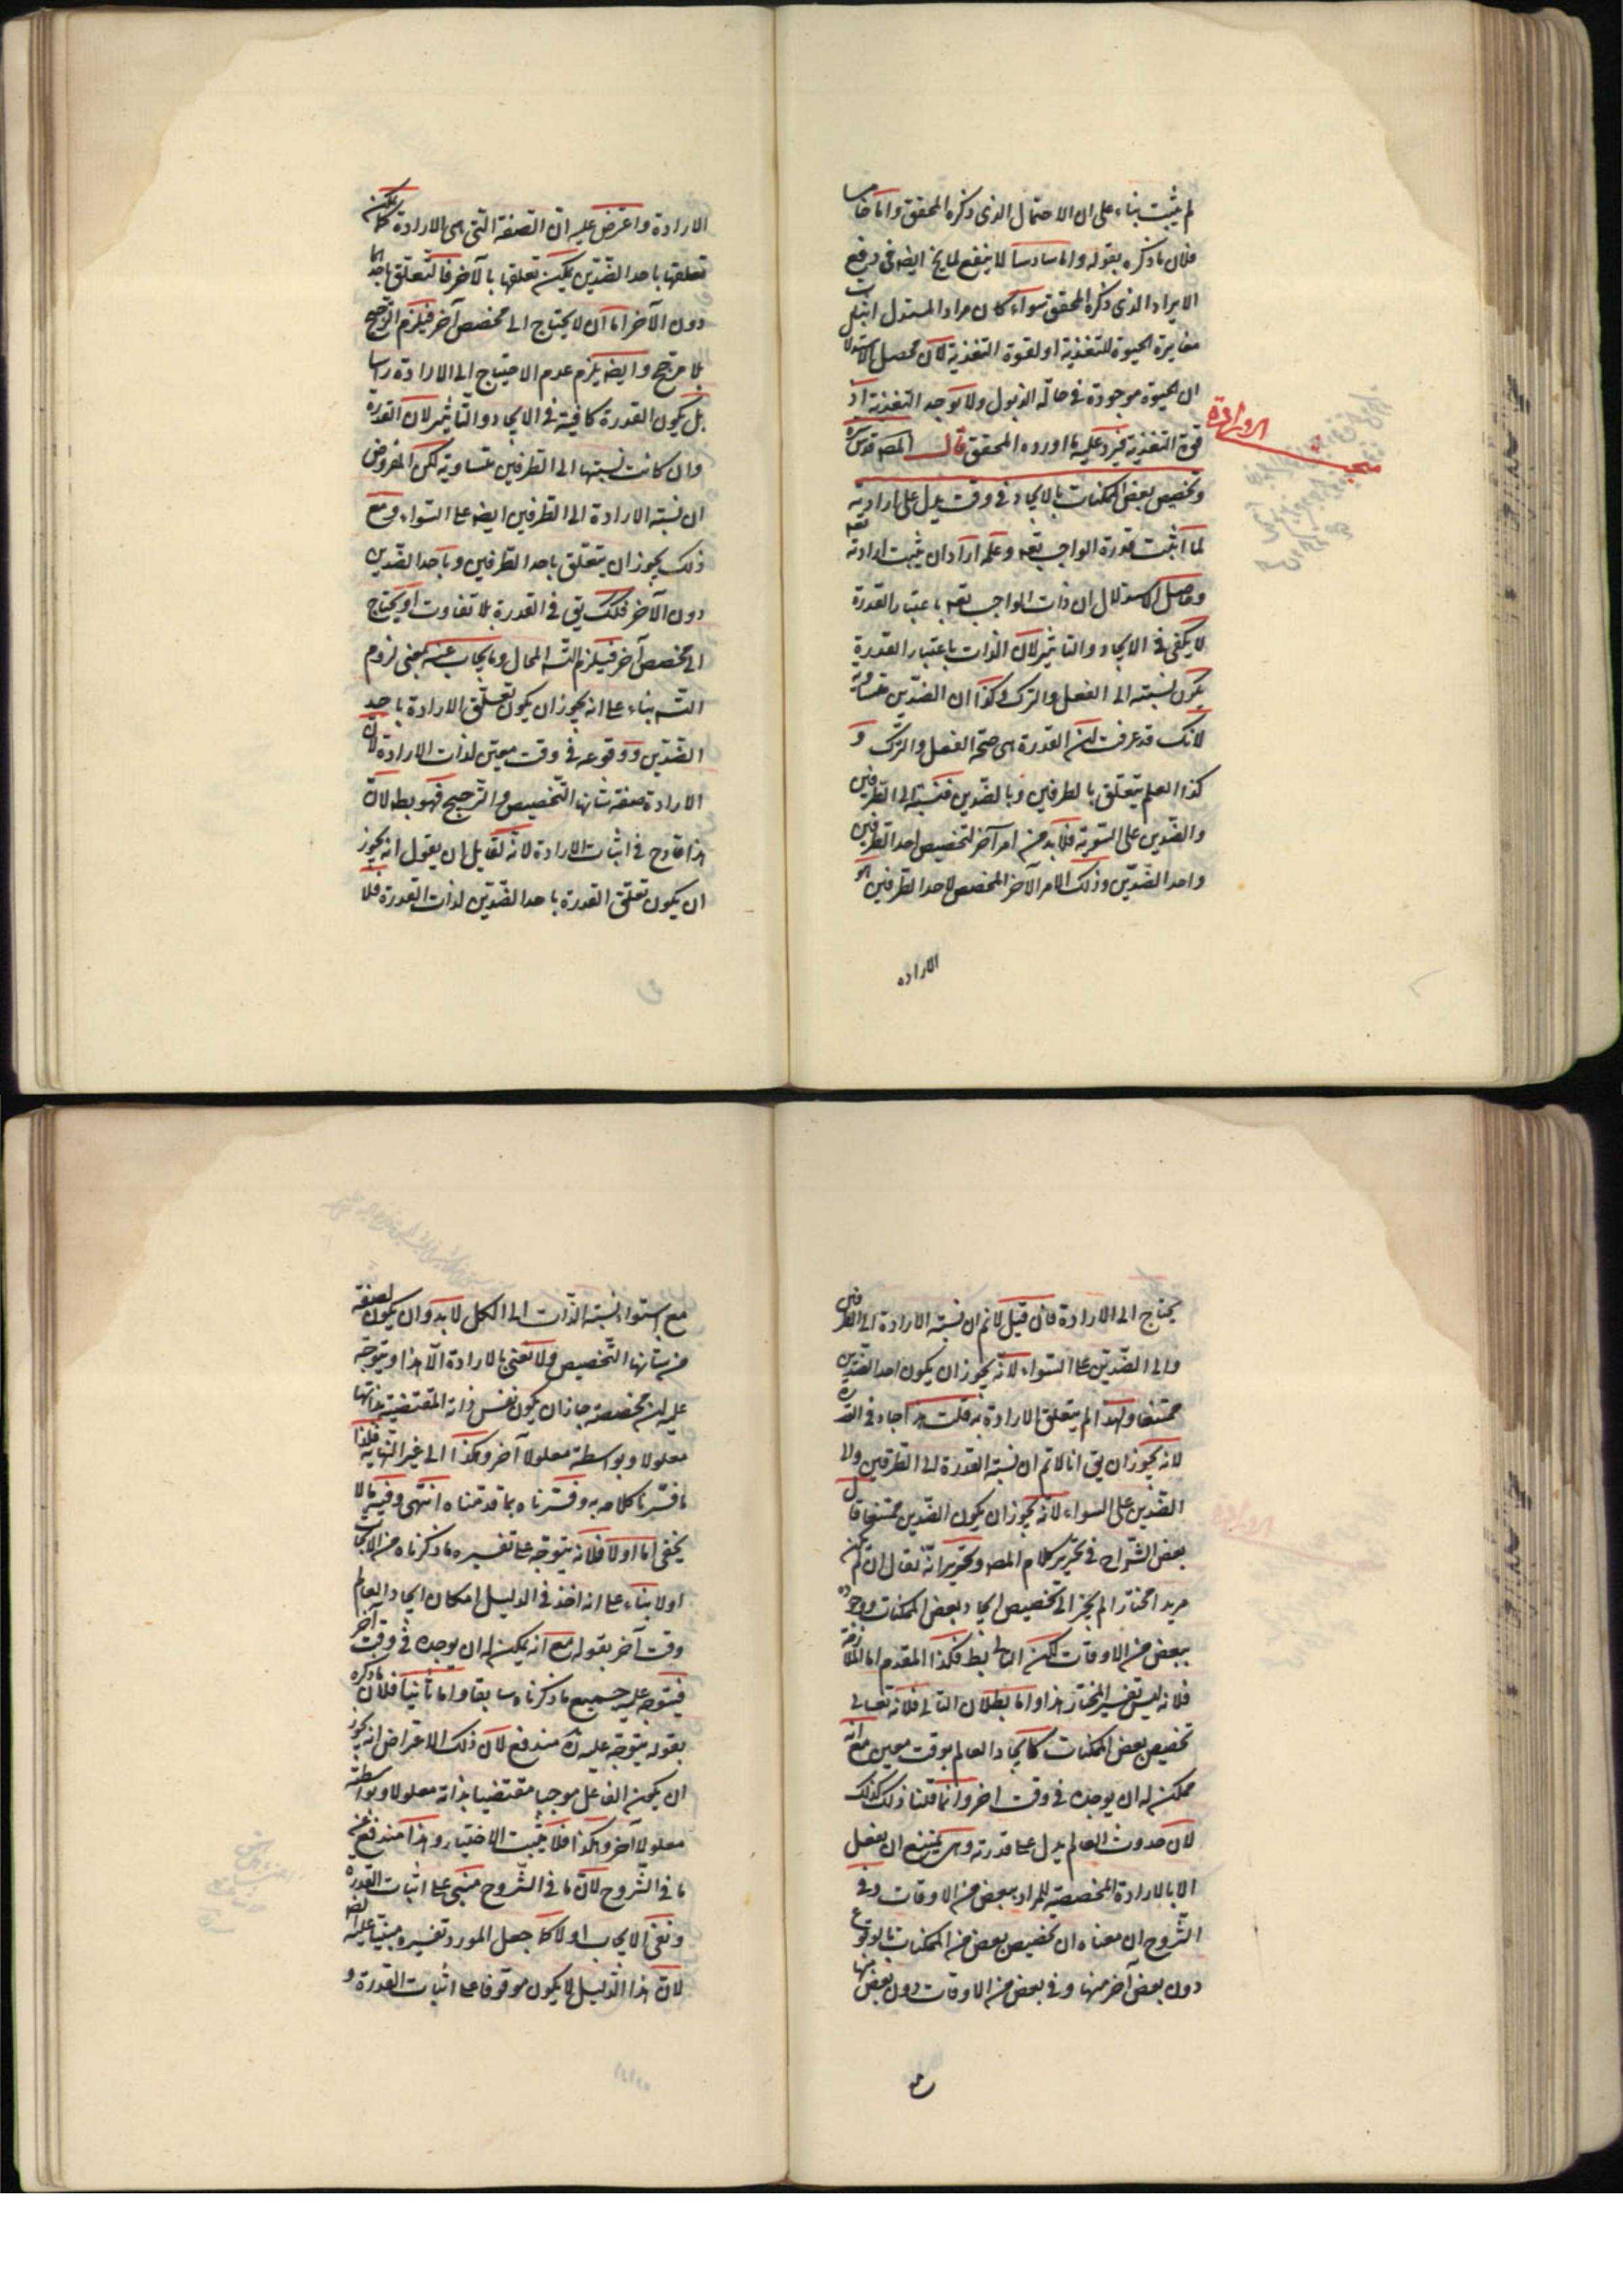 لم يثبت بناء على ان الاحتمال الذى ذكره المحقق واما خامسا
فلان ما ذكره بقوله واما سادسا لا ينفع لما يخ ايضه فى دفع
الايراد الذى ذكره المحقق سواء كان مراد المستدل اثبات
مغايرة الحيوة للتغذية او لقوة التغذية لان محصل الاستدلال
ان الحيوة موجودة فى حالة الذبول ولا توجد التغذية او
قوة التغذية فيرد عليه ما اورده المحقق قال المصه قدس سره
وتخصيص بعض الممكنات بالايجاد فى وقت يدل على ارادته
لما اثبت قدرة الواجب تعه وعلمه اراد ان يثبت ارادته تعه
وحاصل الاستدلال ان ذات الواجب تعه باعتبار القدرة
لا يكفى فى الايجاد والتاثير لان الذات باعتبار القدرة
يكون نسبته الى الفعل والترك وكذا ان الضدين متساوية
لانك قد عرفت ان القدرة هى صحة الفعل والترك و
كذا العلم يتعلق بالطرفين وبالضدين فنسبته الى الطرفين
والضدين على السوية فلا بد من امر آخر لتخصيص احد الطرفين
واحد الضدين وذلك الامر الآخر المخصص لاحد الطرفين هو
الاراده
الارادة
الارادة واعترض عليه ان الصفة التى هى الارادة كما يمكن
تعلقها باحد الضدين يمكن تعلقها بالآخر فالتعلق باحدهما
دون الآخر اما ان لا يحتاج الى مخصص آخر فيلزم الترجيح
بلا مرجح وايضه يلزم عدم الاحتياج الى الارادة راسا
بل يكون القدرة كافية فى الايجاد والتاثير لان القدرة
وان كانت نسبتها الى الطرفين متساوية لكن المفروض
ان نسبة الارادة الى الطرفين ايضه على السواء ومع
ذلك يجوز ان يتعلق باحد الطرفين وباحد الضدين
دون الآخر فلك يق فى القدرة بلا تفاوت او يحتاج
الى مخصص آخر فيلزم التسه المحال وما يجاب عنه بمعنى لزوم
التسه بناء على انه يجوز ان يكون تعلق الارادة باحد
الضدين ووقوعه فى وقت معين لذات الارادة لان
الارادة صفة شانها التخصيص والترجيح فهو بطه لان
هذا قادح فى اثبات الارادة لانه لقايل ان يقول انه يجوز
ان يكون تعلق القدرة باحد الضدين لذات القدرة فلا
يحتاج الى الارادة فان قيل لا نم ان نسبة الارادة الى الطرفين
والى الضدين على السواء لانه يجوز ان يكون احد الضدين
ممتنعا ولهذا لم يتعلق الارادة به قلت هذا جاء فى القدرة
لانه يجوز ان يق انا لا نم ان نسبة القدرة الى الطرفين والى
الضدين على السواء لانه يجوز ان يكون الضدين ممتنعا قال
بعض الشراح فى تحرير كلام المصه وتحريره انه نقال ان لم يكن
مريدا مختارا لم يجز الى تخصيص ايجاد بعض الممكنات ووجوده
ببعض من الاوقات لكن التالى بط فكذا المقدم اما الملازمة
فلانه ليس تفسير المختار هذا واما بطلان التالى فلانه تعالى
تخصيص بعض الممكنات كايجاد العالم بوقت معين مع انه
ممكن له ان يوجده فى وقت اخر وانما قلنا ذلك كذلك
لان حدوث العالم يدل على قدرته وهى يمتنع ان يفعل
الا بالارادة المخصصة للمراد ببعض من الاوقات وفى
الشروح ان معناه ان تخصيص بعض من الممكنات بالوقوع
دون بعض آخر منها وفى بعض من الاوقات دون بعض منها
مع
مع استواء نسبة الذات الى الكل لا بد وان يكون لصفة
من شانها التخصيص ولا نعنى بالارادة الا هذا ويتوجه
عليه ان مخصصه جاز ان يكون نفس ذاته المقتضية بذاتها
معلولا وبواسطة معلولا آخر وهكذا الى غير النهاية فلذا
ما فسرنا كلامه به وفسرناه بما قدمناه انتهى وفيه ما لا
يخفى اما اولا فلانه يتوجه على تفسيره ما ذكرناه من الايجاب
اولا بناء على انه اخذ فى الدليل امكان ايجاد العالم
وقت آخر بقوله مع انه يمكن له ان يوجده فى وقت آخر
فيتوجه عليه جميع ما ذكرناه سابقا واما ثانيا فلان ما ذكره
بقوله يتوجه عليه ان مندفع لان ذلك الاعتراض انه يجوز
ان يكون الفاعل موجبا مقتضيا بذاته معلولا وبواسطة
معلولا آخر وهكذا فلا يثبت الاختيار وهذا مندفع عن
ما فى الشروح لان ما فى الشروح مبنى على اثبات القدرة
ونفى الايجاب اولا كما جعل المورد تفسيره مبنيا عليه ايضه
لان هذا الدليل لا يكون موقوفا على اثبات القدرة و